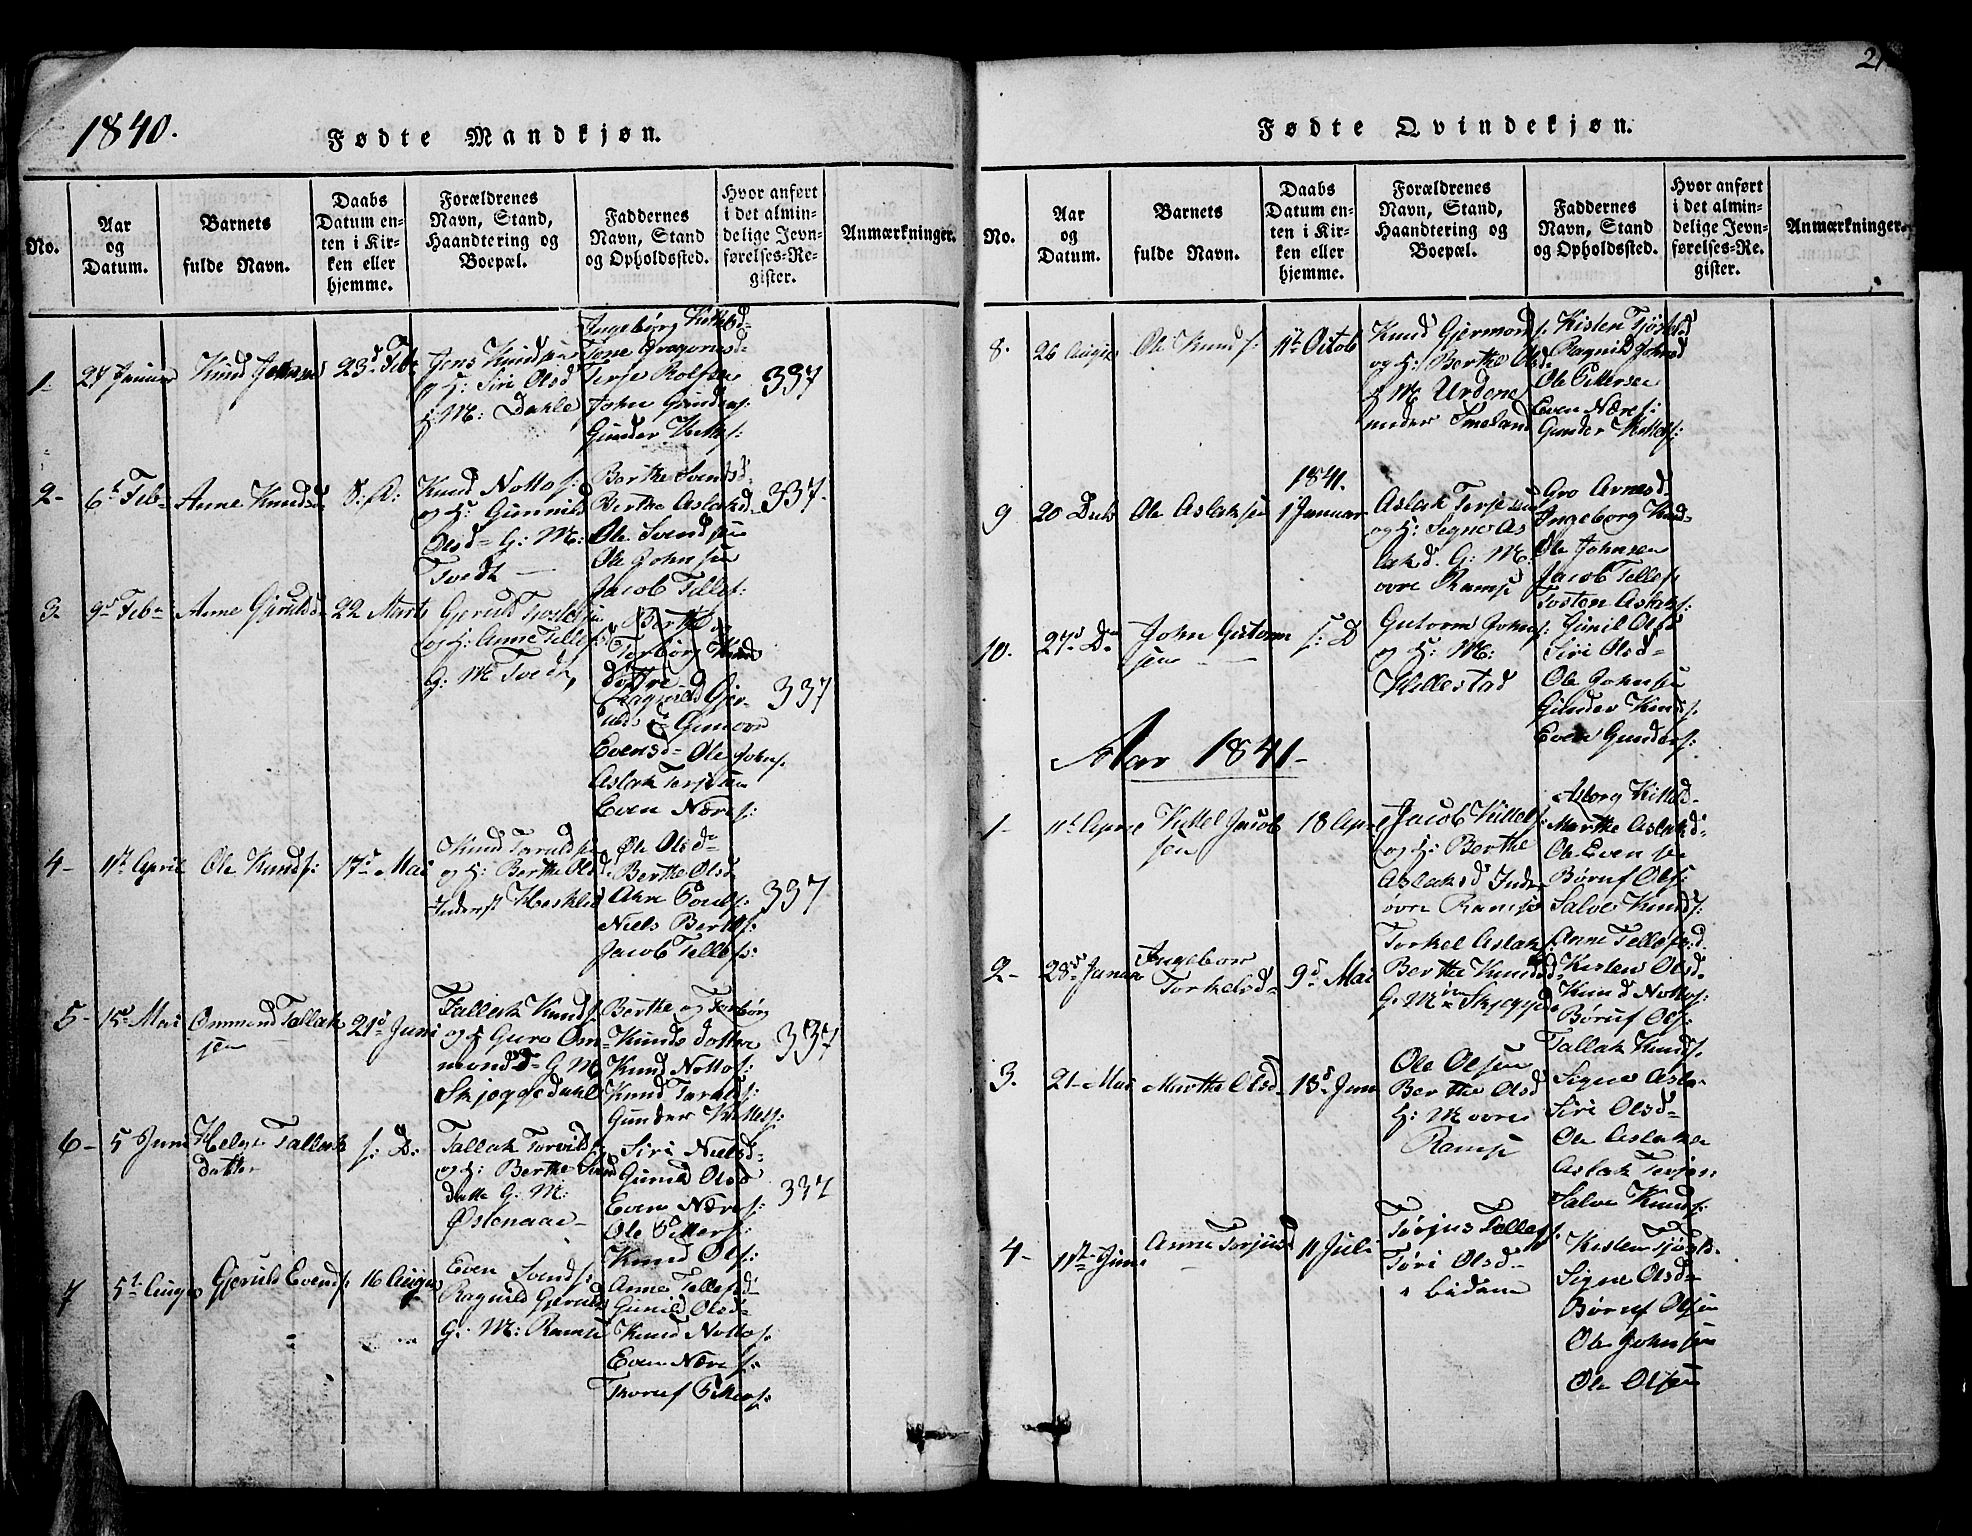 1840.
Fødte Mandkjøn.
No.
Aar
og
Datum.
Barnets
fulde Navn.
Daabs
Datum en-
ten i Kir-
ken eller
hjemme.
Forældrenes
Navn, Stand,
Haandtering og
Boepæl.
Faddernes
Navn, Stand
og Opholdssted.
Hvor anført
i det almin-
delige Jevn-
førelses-Re-
gister.
Anmærkninger.
1-
27 Januar
Knud Jensen
23d Feb
Jens Knudsen
og H: Siri Olsd
G: M: Dahle
Ingebörg Kittelsd-
Tone Gregoriesd-
Terje Rolfsen
John Gundersf:
Gunder Kittelsf:
337
2-
6t Feb-
Anne Knudsd
S: D:
Knud Nottosf:
og H: Gunnild
Olsd- G: M:
Tvedt -
Berthe Svendsd:
Berthe Aslaksd-
Ole Svendsen
Ole Johnsen
Jacob Tellefsf:
337-
3.
9d Feb-
Anne Gjeruldsd-
22 Marts
Gjeruld Tjostolfsen
og H: Anne Tellefsd:
G: M Tvedt,
Berthe og
Torborg Knuds
dottre
Ragnild Gjer-
ulds Gunvor
Evensd- Ole Johnsf.
Aslak Terjesen
Even Næresf:
337
4-
11te April
Ole Knudsf:
17d Mai
Knud Taraldsen
og H: Berthe Olsd
Inderst Hesklid
Ole Olsd-
Berthe Olsd
Niels Berthelsf:
Jacob Tellefsf:
337
5-
15d Mai
Ommund Tallak
sen
21d Juni
Tallak Knudsf.
og H Guro Om-
mondsd- G M
Skjeggedahl
Berthe og Torbörg
Knuds dottre
Knud Nottosf:
Knud Taraldsf:
Gunder Kittelsf:
337
6-
5 Juni
Helge Tallaks
datter
S: D:
Tallak Torvilds
og H: Berthe Knuds
datter G: M:
Østenaae-
Siri Nielsd-
Gunild Olsd
Even Næresf:
Ole Pettersf:
Knud Olsf:
337
7
5t August
Gjeruld Evensf:
16 August
Even Svendsf:
Ragnild Gjerulds
G: M: Ramse
Anne Tellefsd-
Gunild Olsd-
Knud Nottosf.
Even Næresf:
Thoruf Pettersf:
21
Fødte Qvindekjøn.
No.
Aar
og
Datum.
Barnets
fulde Navn.
Daabs
Datum en-
ten i Kir-
ken eller
hjemme.
Forældrenes
Navn, Stand,
Haandtering og
Boepæl.
Faddernes
Navn, Stand
og Opholdssted.
Hvor anført
i det almin-
delige Jevn-
førelses-Re-
gister.
Anmærkninger.
8.
26 August
Ole Knudsf:
11te Octob
Knud Gjermonsf.
og H: Berthe Olsd-
G M: Urdene
under Smeland
Kisten Tjöstelsd
Ragnild Johnsd
Ole Pettersen
Even Næresf:
Gunder Kittelsf:
9
20 Decb
Ole Aslaksen
1841.
1 Januar
Aslak Terjesen
og H: Segne As
laksd. G: M:
övre Ramse
Gro Arnesd.
Ingeborg Knud-
Ole Johnsen
Jacob Tellefsf.
Tosten Aslaksf:
10.
27d Do
John Gutorm
sen
S: D
Gutorm Johnsf:
og H: M:
Hillestad
Gunil Olsd
Siri Olsd-
Ole Johnsen
Gunder Knudsf.
Even Gundersf:
Aar 1841-
1-
11te April
Kittel Jacob
sen
18 April
Jacob Kittelsf:
og H: Berthe
Aslaksd Inder
övre Ramse
Asborg Kittelsd-
Marthe Aslaksd-
Ole Evensen
Böruf Olsf:
Salve Knudsf:
2-
28d Januar
Ingebor
Torkelsd-
9d Mai
Torkel Aslaksf:
Berthe Knudsd
G: M Skjeggeda
Anne Tellefsd.
Kisten Olsd-
Knud Nottosf:
Böruf Olsf:
Tallak Knudsf.
3.
21- Mai
Marthe Olsd-
13d Juni
Ole Olsen
Berthe Olsd
H: M övre
Ramse
Signe Asla-
Siri Olsd-
Ole Aslaksen
Aslak Terjesen
Salve Knudsf:
4-
11te Juni
Anne Torjusd
11 Juli
Törjus Tellefsf.
Töri Olsd-
ibidem
Kisten Tjösts-
Signe Olsd-
Böruf Olsen
Ole Johnsen
Ole Olsen